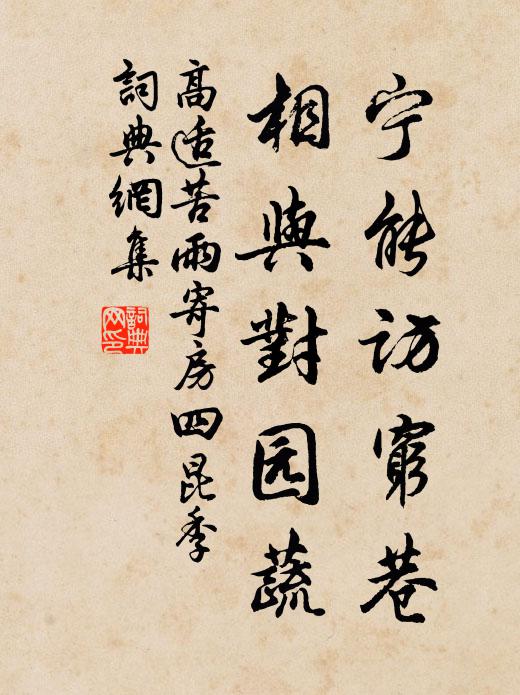 宁能访穷巷
相與對园蔬
高适苦雨寄房四昆季
詞典網集
詞典网印